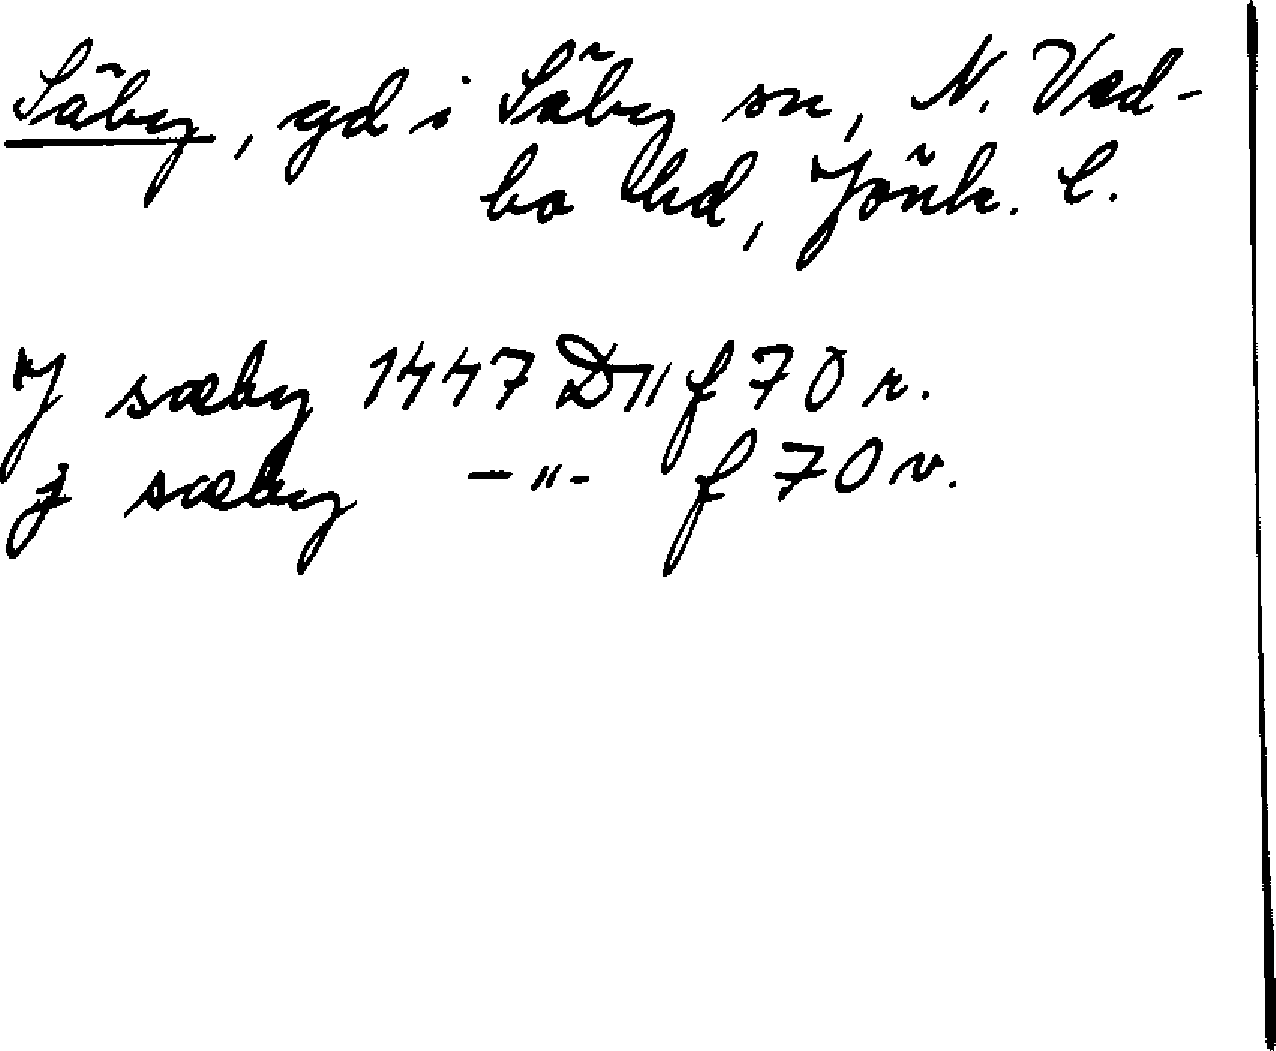 Säby, gd i Säby sn, N. Ved-
bo hd, Jönk. l.
J sæby 1447 D11 f 70 r.
j sæby -"- f 70 v.